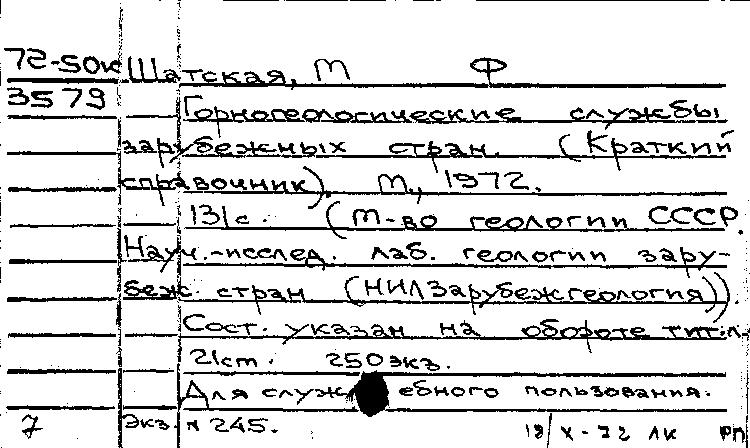 72-50к Шатская, М Ф
3579
Горногеологические службы
зарубежных стран. (Краткий
справочник). М., 1972.
131с. (М-во геологии СССР.
Науч.-исслед. лаб. геологии зару-
беж. стран (НИЛЗарубежгеология)).
Сост. указан на обороте тит.л.
21см. 250экз.
Для служебного пользования.
7 Экз. № 245. 18/X-72 ЛК РП